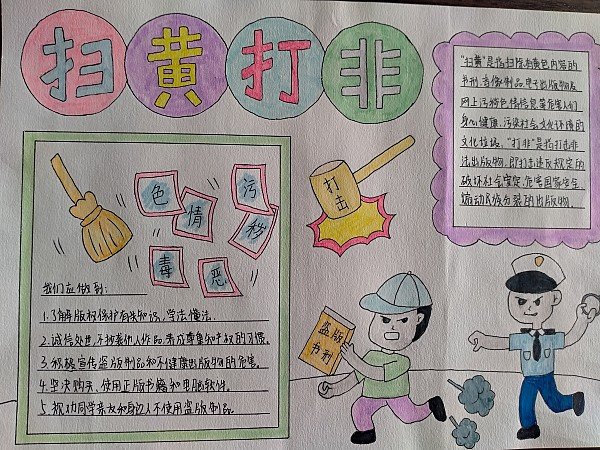 扫黄打非
"扫黄"是指扫除有黄色内容的
书刊、音像制品、电子出版物及
网上污秽色情信息等危害人们
身心健康、污染社会文化环境的
文化垃圾。"打非"是指打击非
法出版物,即打击违反规定的
破坏社会安定、危害国家安全、
煽动民族分裂的出版物
色
情
污
秽
毒
恶
打
击
我们应做到:
1.了解版权保护有关知识,学法懂法.
2.诚信处世,不抄袭他人作品,养成尊重知识产权的习惯。
3.积极宣传盗版制品和不健康出版物的危害。
4.坚决购买、使用正版书籍和电脑软件.
5.劝告同学亲友和身边人不使用盗版制品.
盗版
书刊